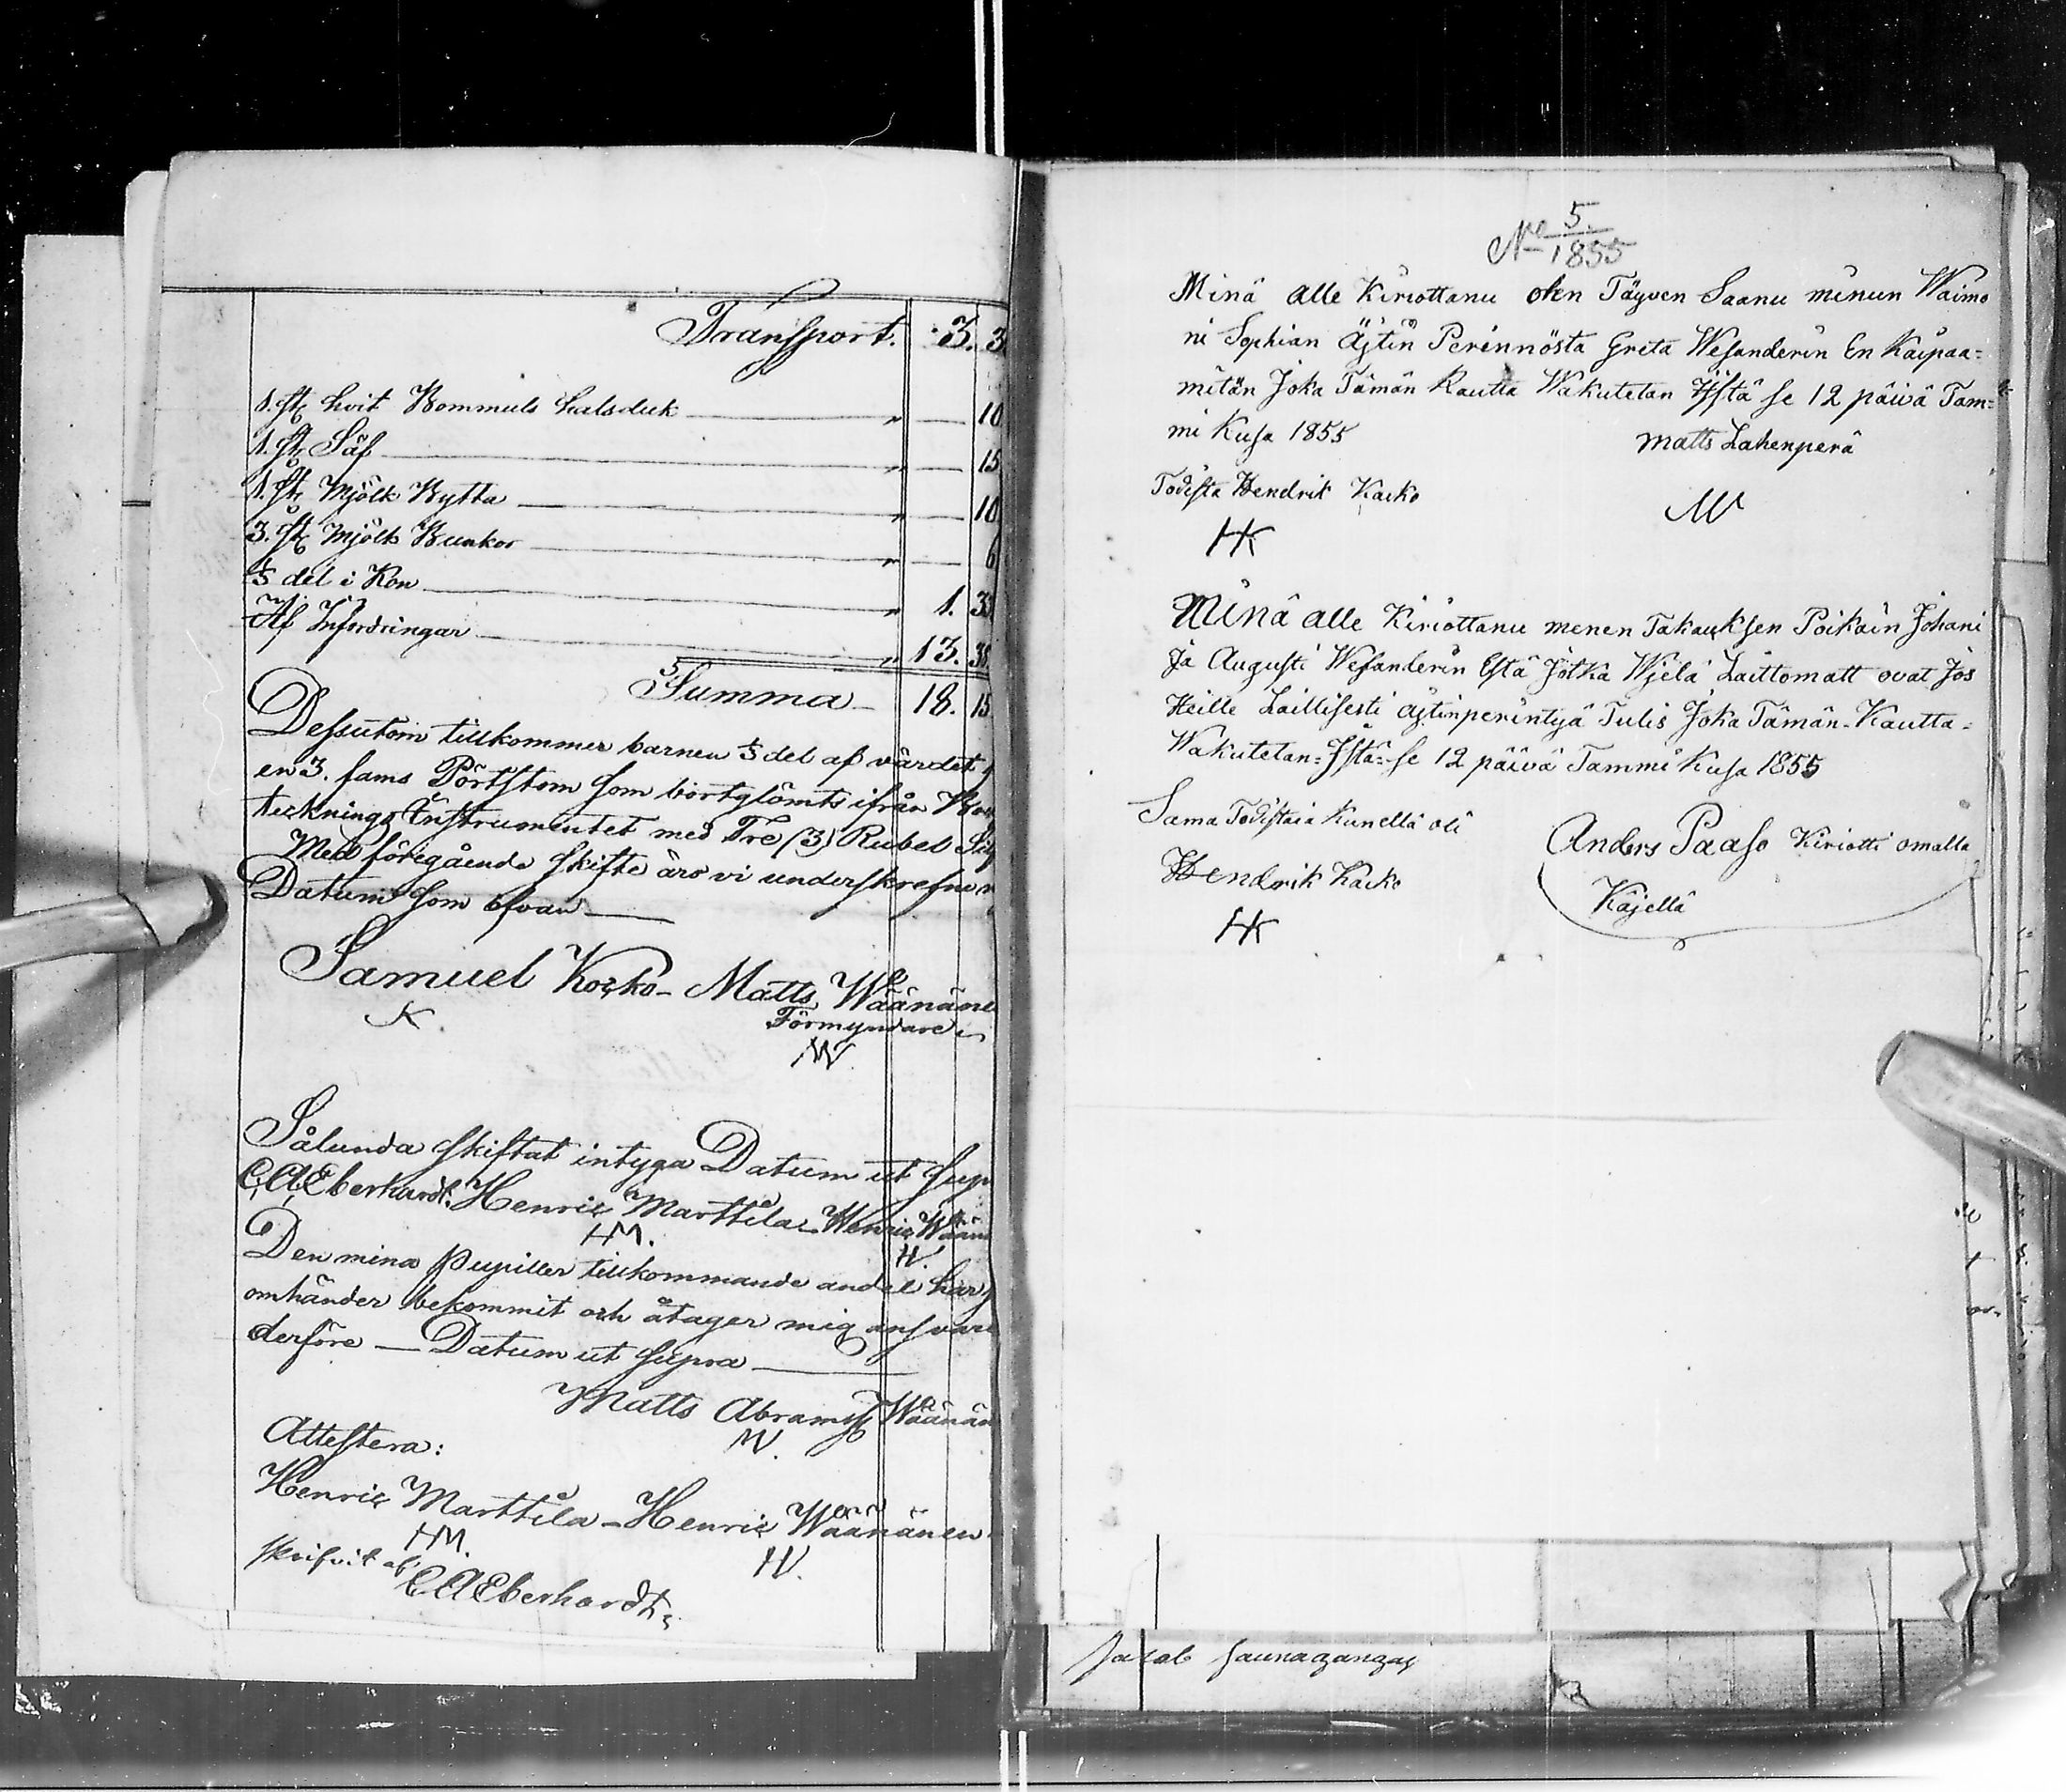 Transport. 3. 3
1. st hvit Bommuls halsduk — " — 10
1. st Säf — " — 15
1. st Mjölk Bytta — " — 10
3. st Mjölk Bunkor — " — 6
1/5 del i Kon — " 1. 33
Af Infordringar — " 13. 38
Summa — 18. 15
Dessutom tillkommer barnen 1/5 del af värdet
en 3. fams Pörtstom som bortglömts ifrån Bou
tecknings Instrumentet med Tre (3) Rubel Silf
Med föregående skifte äro vi underskrefne n
Datum som ofvan —
Samuel Korko — Matts Wäänäne
K. Förmyndare
MW
Sålunda skiftat intyga Datum ut sup
C. A. Eberhardt. Henric Marttila — Henric Wään
HM. HW.
Den mina Pupiller tillkommande andel har j
omhänder bekommit och åtager mig ansvare
derföre — Datum ut supra —
Matts Abramss Wäänän
MW.
Attestera:
Henric Marttila — Henric Wäänänen
HM. HW.
skrifvit af
C. A Eberhardt,
No 5./1855
Minä alle Kiriottanu olen Täyven Saanu minun Waimo
ni Sophian Äjtin Perinnösta Greta Wesanderin En Kaipaa=
mitän Joka Tämän Kautta Wakutetan Ystä se 12 päivä Tam=
mi Kusa 1855 Matts Lahenperä
Todista Hendrik Kacko MW
HK
Minä alle Kiriottanu menen Takauksen Poikain Johani
Ja Augusti Wesanderin Estä Jotka Wjelä Laittomatt ovat Jos
Heille Laillisesti äjtinperintyä Tulis Joka Tämän-Kautta=
Wakutetan=Ystä=se 12 päivä Tammi Kusa 1855
Sama Todistaia Kunellä oli
Anders Paaso Kiriotti omalla
Hendrik Kacko Käjellä
HK
Jacob saunagangas